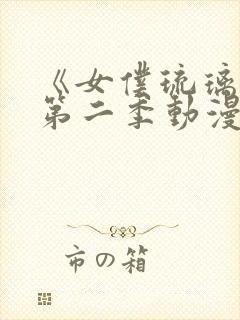 《女僕琉璃
第二季動漫
市の箱